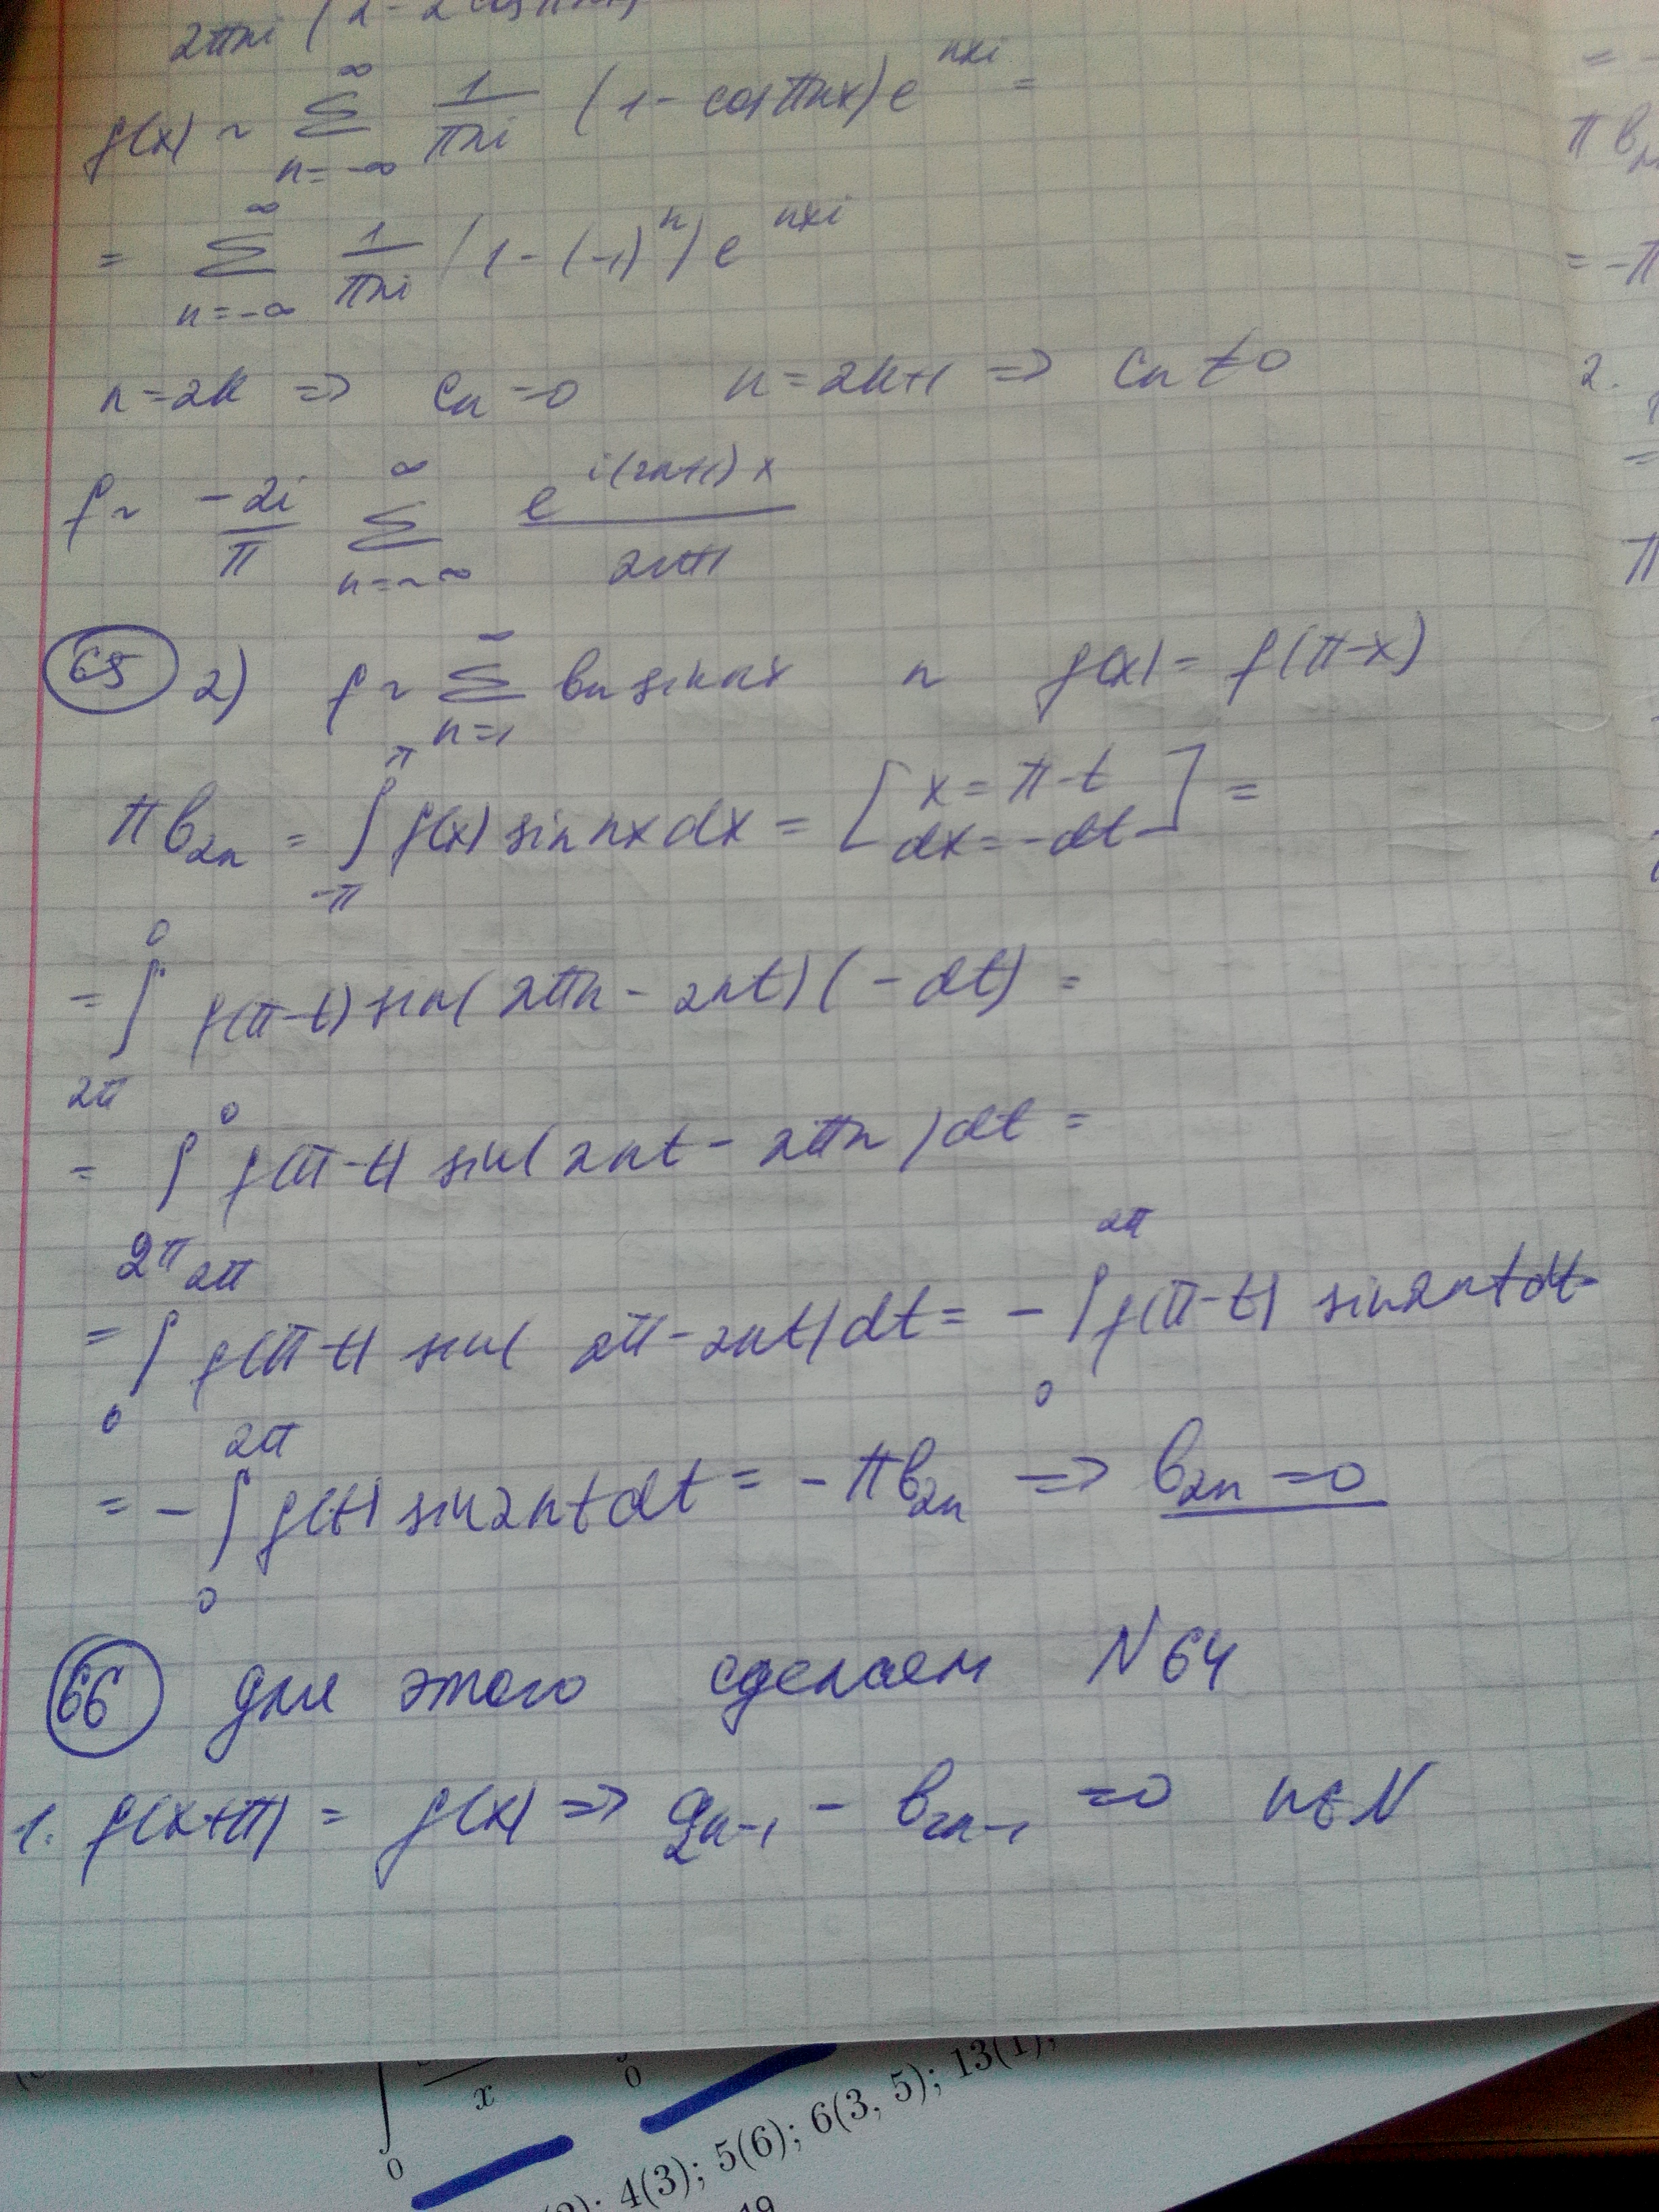 2πni (2 - 2cos
f(x) ~ ∞ Σ n=-∞ 1/πni (1 - cos πnx) e^nxi =
= ∞ Σ n=-∞ 1/πni (1 - (-1)^n) e^nxi
n=2k => cn=0 n=2k+1 => cn≠0
f ~ -2i/π ∞ Σ n=-∞ e^i(2n+1)x / 2n+1
65 2) f ~ ∞ Σ n=1 bn sin nx и f(x) = f(π-x)
πb2n = ∫ -π π f(x) sin nx dx = [ x = π-t dx = -dt ] =
= ∫ 2π 0 f(π-t) sin(2πn - 2nt)(-dt) =
= ∫ 2π 0 f(π-t) sin(2nt - 2πn) dt =
= ∫ 0 2π f(π-t) sin( 2π - 2nt) dt = - ∫ 0 2π f(π-t) sin 2nt dt
= - ∫ 0 2π f(t) sin 2nt dt = -πb2n => b2n = 0
66 для этого сделаем N 64
1. f(x+π) = f(x) => a2n-1 - b2n-1 = 0 n∈N
= -
π b
= -π
2.
=
π
0 x 0
4(3); 5(6); 6(3, 5); 13(1);